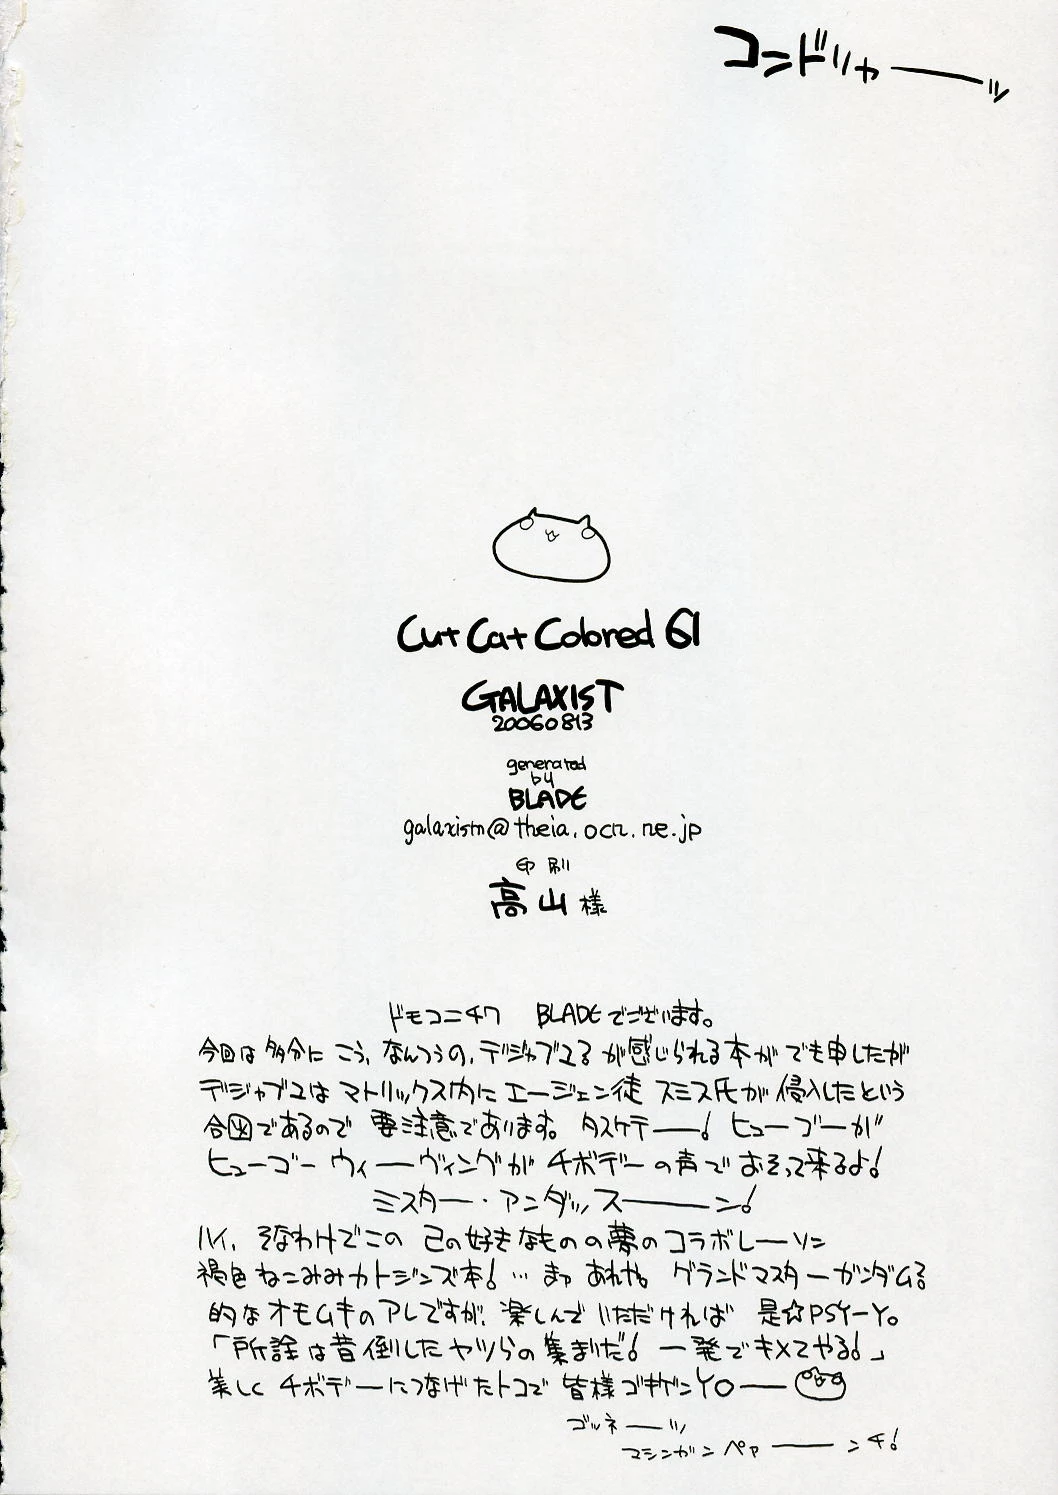 コンドリャーーッ
Cut Cat Colored 61
GALAXIST
20060813
generated
by
BLADE
galaxism@theia.ocn.ne.jp
印刷
高山様
ドモコニチワ BLADEでございます。
今回は多分に こう、なんつうの、デジャブュるが感じられる本がでも申したが
デジャブュは マトリックス内に エージェン徒 スミス氏が侵入したという
合図であるので 要注意であります。タスケテーー! ヒューゴーが
ヒューゴー ウィーーヴィングが チボデーの声で おそって来るよ!
ミスター・アンダッスーーーン!
ハイ、そなわけでこの 己の好きなものの夢のコラボレーソン
褐色ねこみみカトジンズ本! … まァ あれや。グランドマスターガンダムる
的なオモムキのアレですが、楽しんで いただければ 是☆PSY-Y。
「所詮は昔倒したヤツらの集まりだ! 一発でキメてやる!」
美しく チボデーにつなげたトコで 皆様ゴキゲンYOーー
ゴルネーーッ
マシンガンペァーーーンチ!